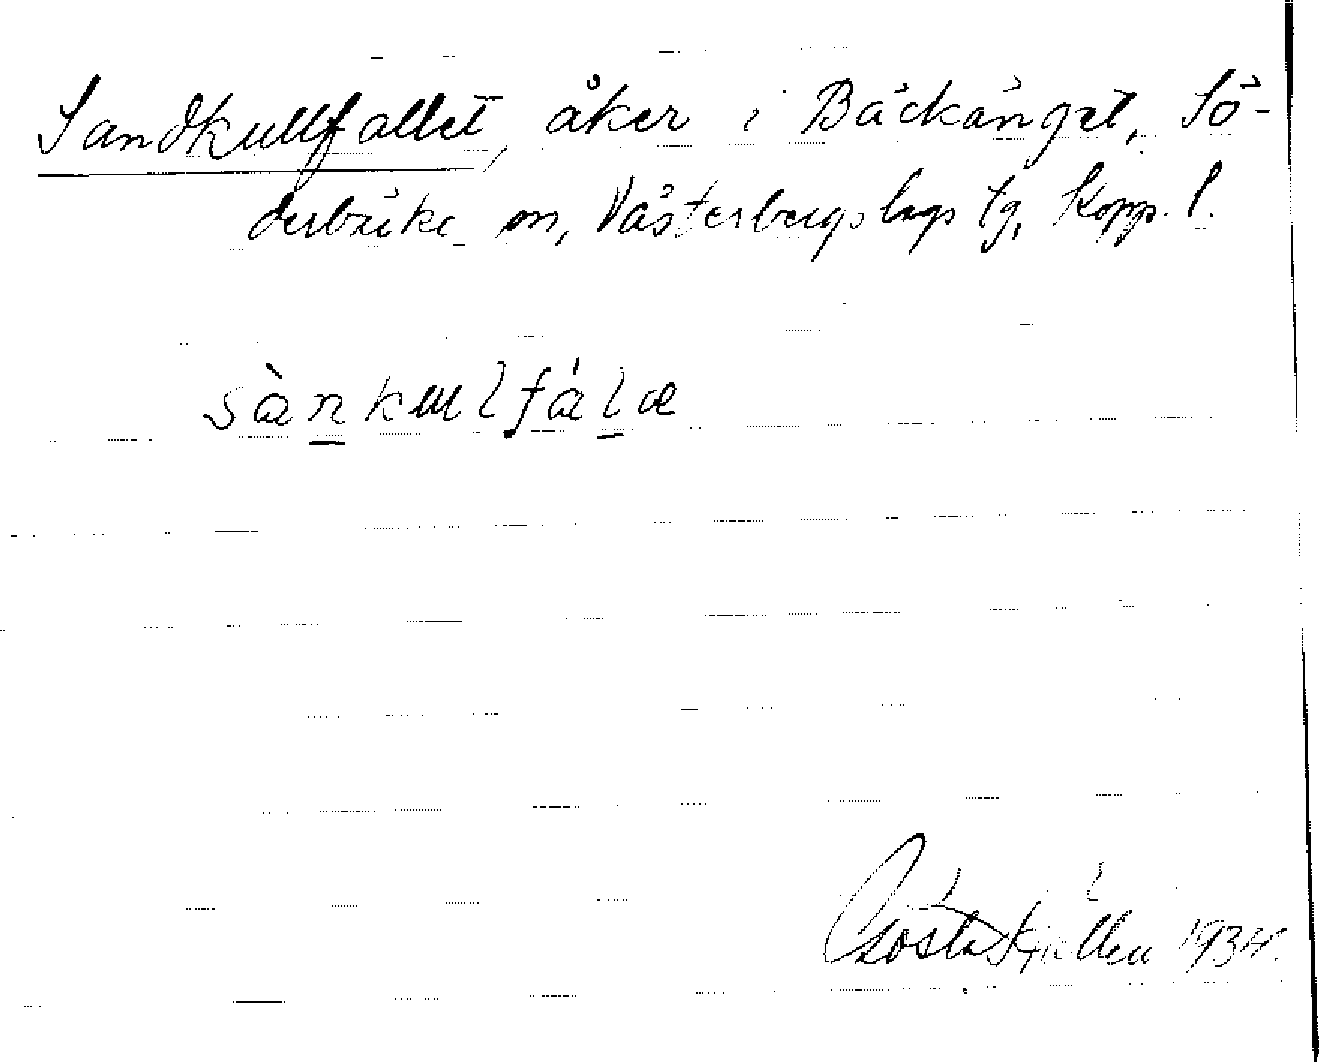 Sandkullfallet, åker i Bäckänget, Sö-
derbärke sn, Västerbergslags tg, Kopp. l.
sànkullfálæ
Gösta Kjellén 1934.